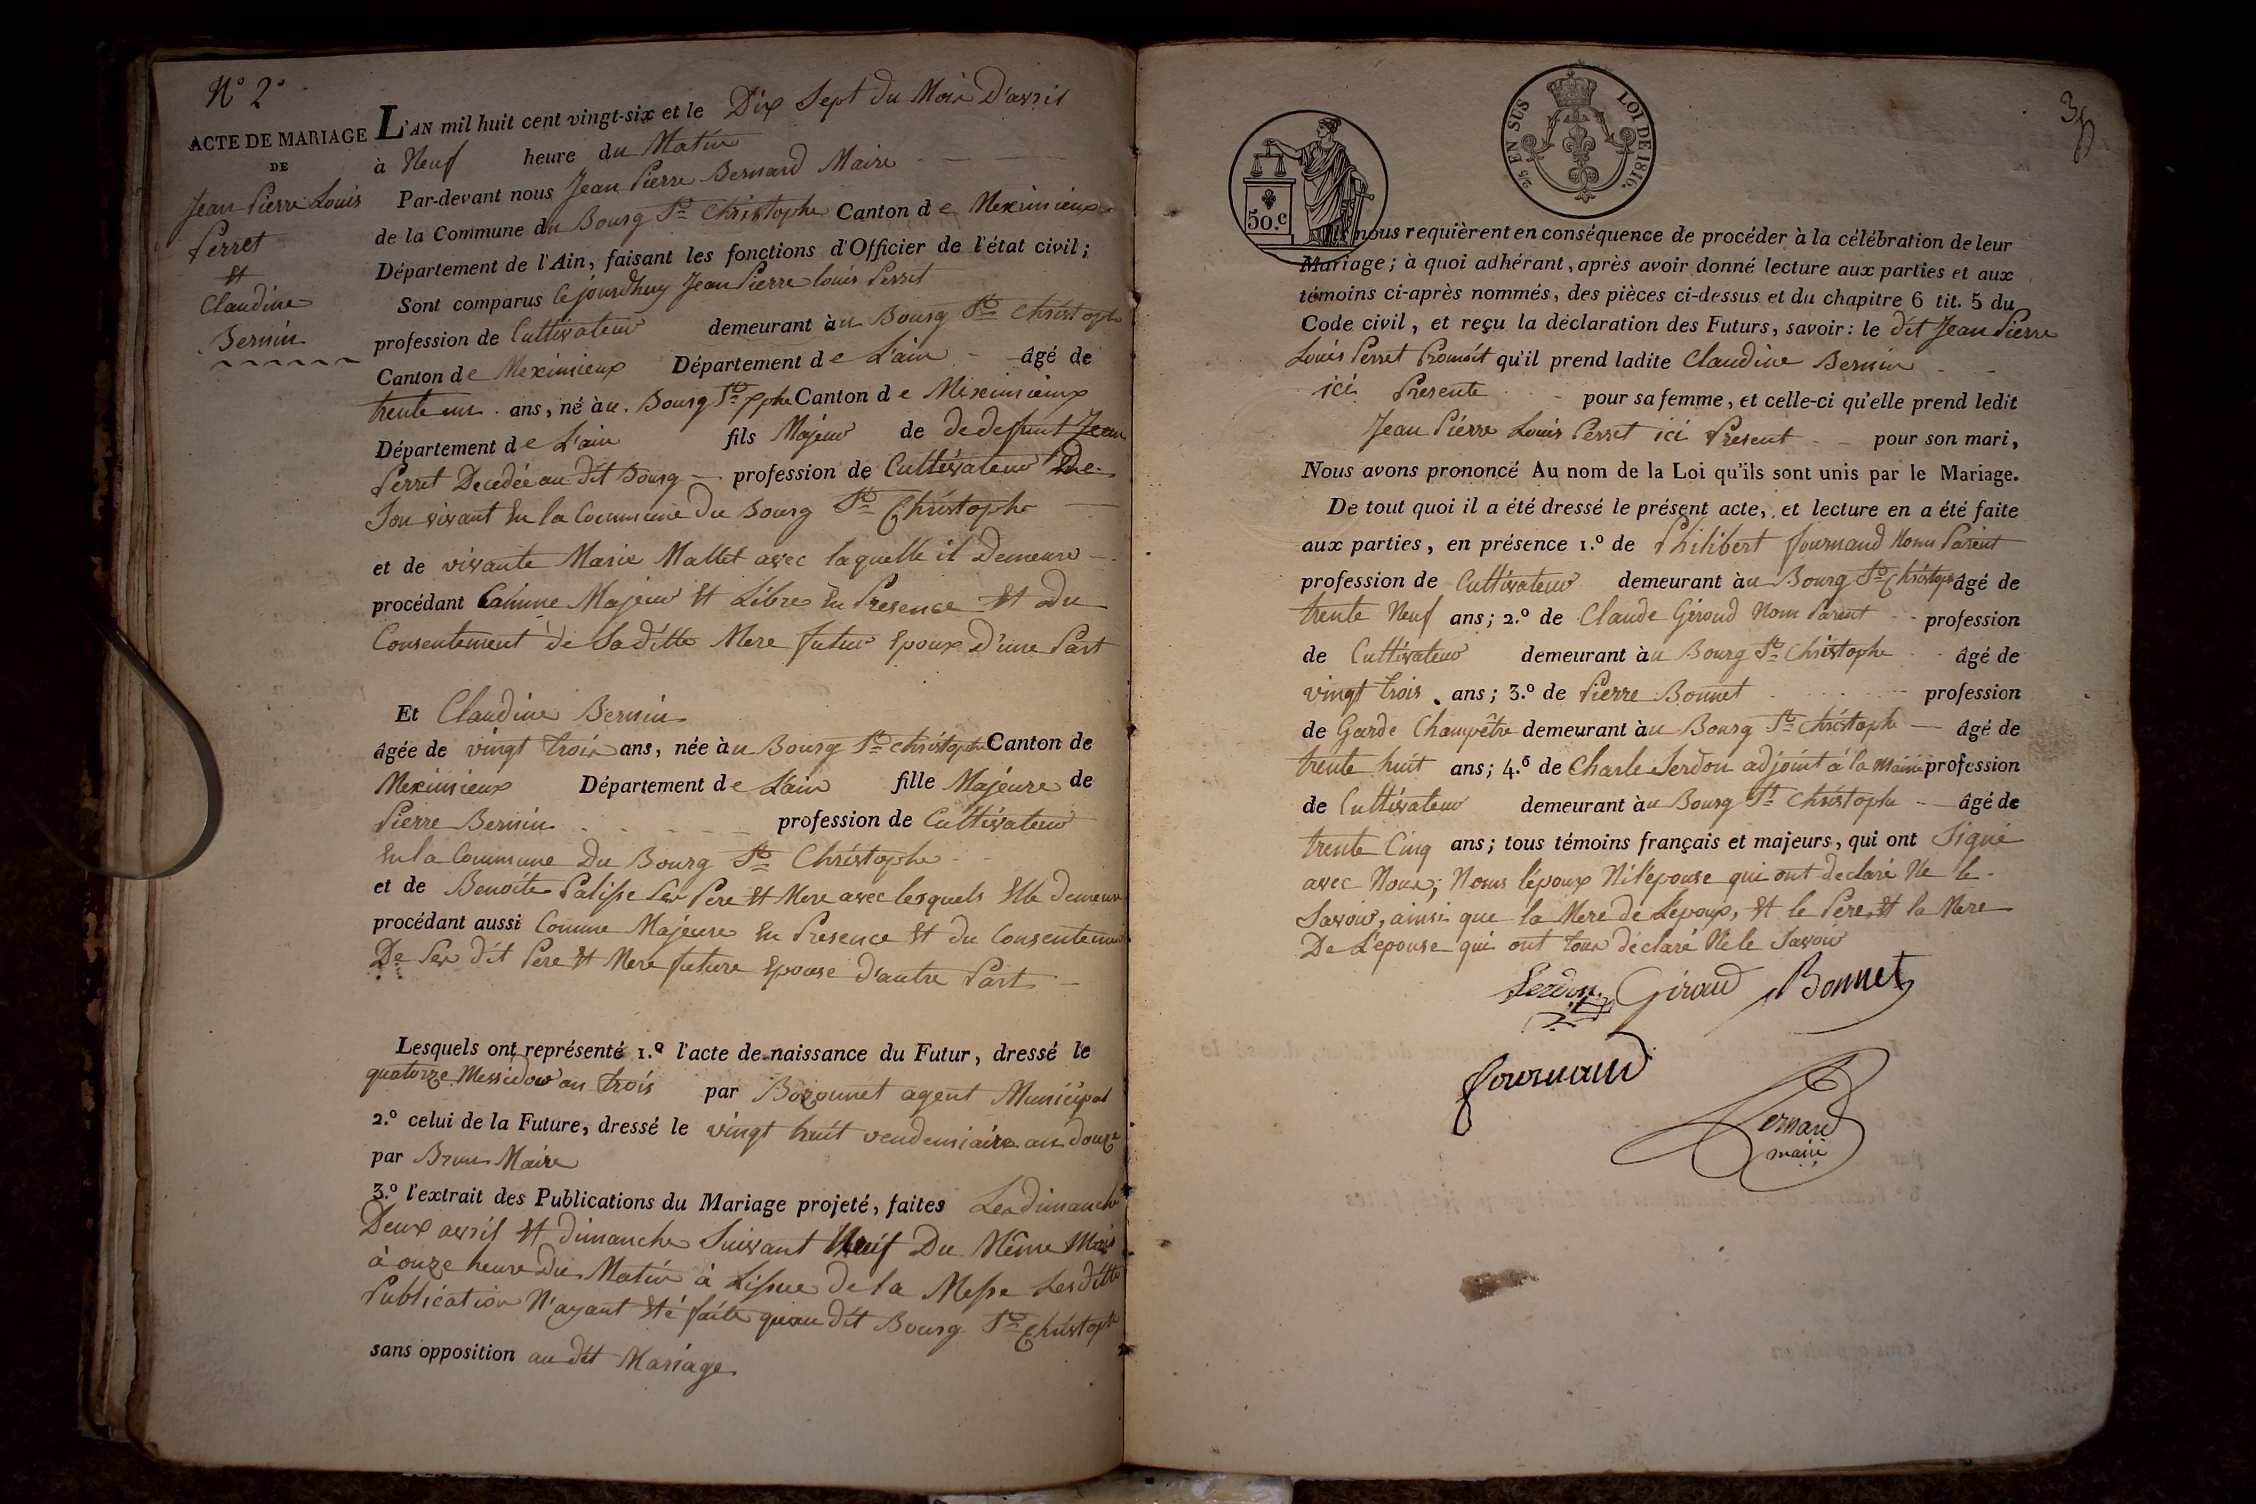 N° 2°
ACTE DE MARIAGE
DE
Jean Pierre Louis
Perret
Et
Claudine
Bernin
L'AN mil huit cent vingt-six et le Dix Sept du Mois D'avril
à Neuf heure du Matin
Par-devant nous Jean Pierre Bernard Maire
de la Commune du Bourg St Christophe Canton de Meximieux
Département de l'Ain, faisant les fonctions d'Officier de l'état civil;
Sont comparus Cejourdhuy Jean Pierre Louis Perret
profession de Cultivateur demeurant àu Bourg St Christophe
Canton de Meximieux Département de L'ain âgé de
trente un ans, né àu Bourg St Xphe Canton de Meximieux
Département de L'ain fils Majeur de de defunt Jean
Perret Decedée au dit Bourg profession de Cultivateur De
Son vivant En la Commune Du Bourg St Christophe
et de vivante Marie Mallet avec laquelle il Demeure
procédant Comme Majeur Et Libre En Presence Et Du
Consentement de Saditte Mere futur Epoux D'une Part
Et Claudine Bernin
âgée de vingt trois ans, née àu Bourg St Christophe Canton de
Meximieux Département de L'ain fille Majeure de
Pierre Bernin profession de Cultivateur
En la Commune Du Bourg St Christophe
et de Benoite Palisse Ses Pere Et Mere avec lesquels Elle demeure
procédant aussi Comme Majeure En Presence Et du Consentement
De Ses dit Pere Et Mere future Epouse d'autre Part
Lesquels ont représenté 1.º l'acte de naissance du Futur, dressé le
quatorze Messidor an trois par Bozonnet agent Municipal
2.º celui de la Future, dressé le vingt huit vendemiaire an douze
par Brun Maire
3.º l'extrait des Publications du Mariage projeté, faites Les dimanche
Deux avril Et dimanche Suivant Neuf Du Même Mois
à onze heure Du Matin à Lissue de la Messe Lesditte
Publication N'ayant Eté faite quau dit Bourg St Christophe
sans opposition au dit Mariage
50.c
25 EN SUS
LOI DE 1816.
nous requièrent en conséquence de procéder à la célébration de leur
Mariage; à quoi adhérant, après avoir donné lecture aux parties et aux
témoins ci-après nommés, des pièces ci-dessus et du chapitre 6 tit. 5 du
Code civil, et reçu la déclaration des Futurs, savoir: le dit Jean Pierre
Louis Perret Promêt qu'il prend ladite Claudine Bernin
ici Presente pour sa femme, et celle-ci qu'elle prend ledit
Jean Pierre Louis Perret ici Present pour son mari,
Nous avons prononcé Au nom de la Loi qu'ils sont unis par le Mariage.
De tout quoi il a été dressé le présent acte, et lecture en a été faite
aux parties, en présence 1.º de Philibert fournand Nom Parent
profession de Cultivateur demeurant àu Bourg St Christophe âgé de
trente Neuf ans; 2.º de Claude Giroud Nom Parent profession
de Cultivateur demeurant àu Bourg St Christophe âgé de
vingt trois ans; 3.º de Pierre Bonnet profession
de Garde Champêtre demeurant àu Bourg St Christophe âgé de
trente huit ans; 4.º de Charle Serdon adjoint à la Mairie profession
de Cultivateur demeurant àu Bourg St Christophe âgé de
trente Cinq ans; tous témoins français et majeurs, qui ont Signé
avec Nous; Nous l'époux Ni l'epouse qui ont declaré Ne le
Savoir, ainsi que la Mere de L'epoux, Et le Pere Et la Mere
De L'epouse qui ont tous déclaré Ne le Savoir
Serdon Giraud Bonnet
fournand
Bernard
maire